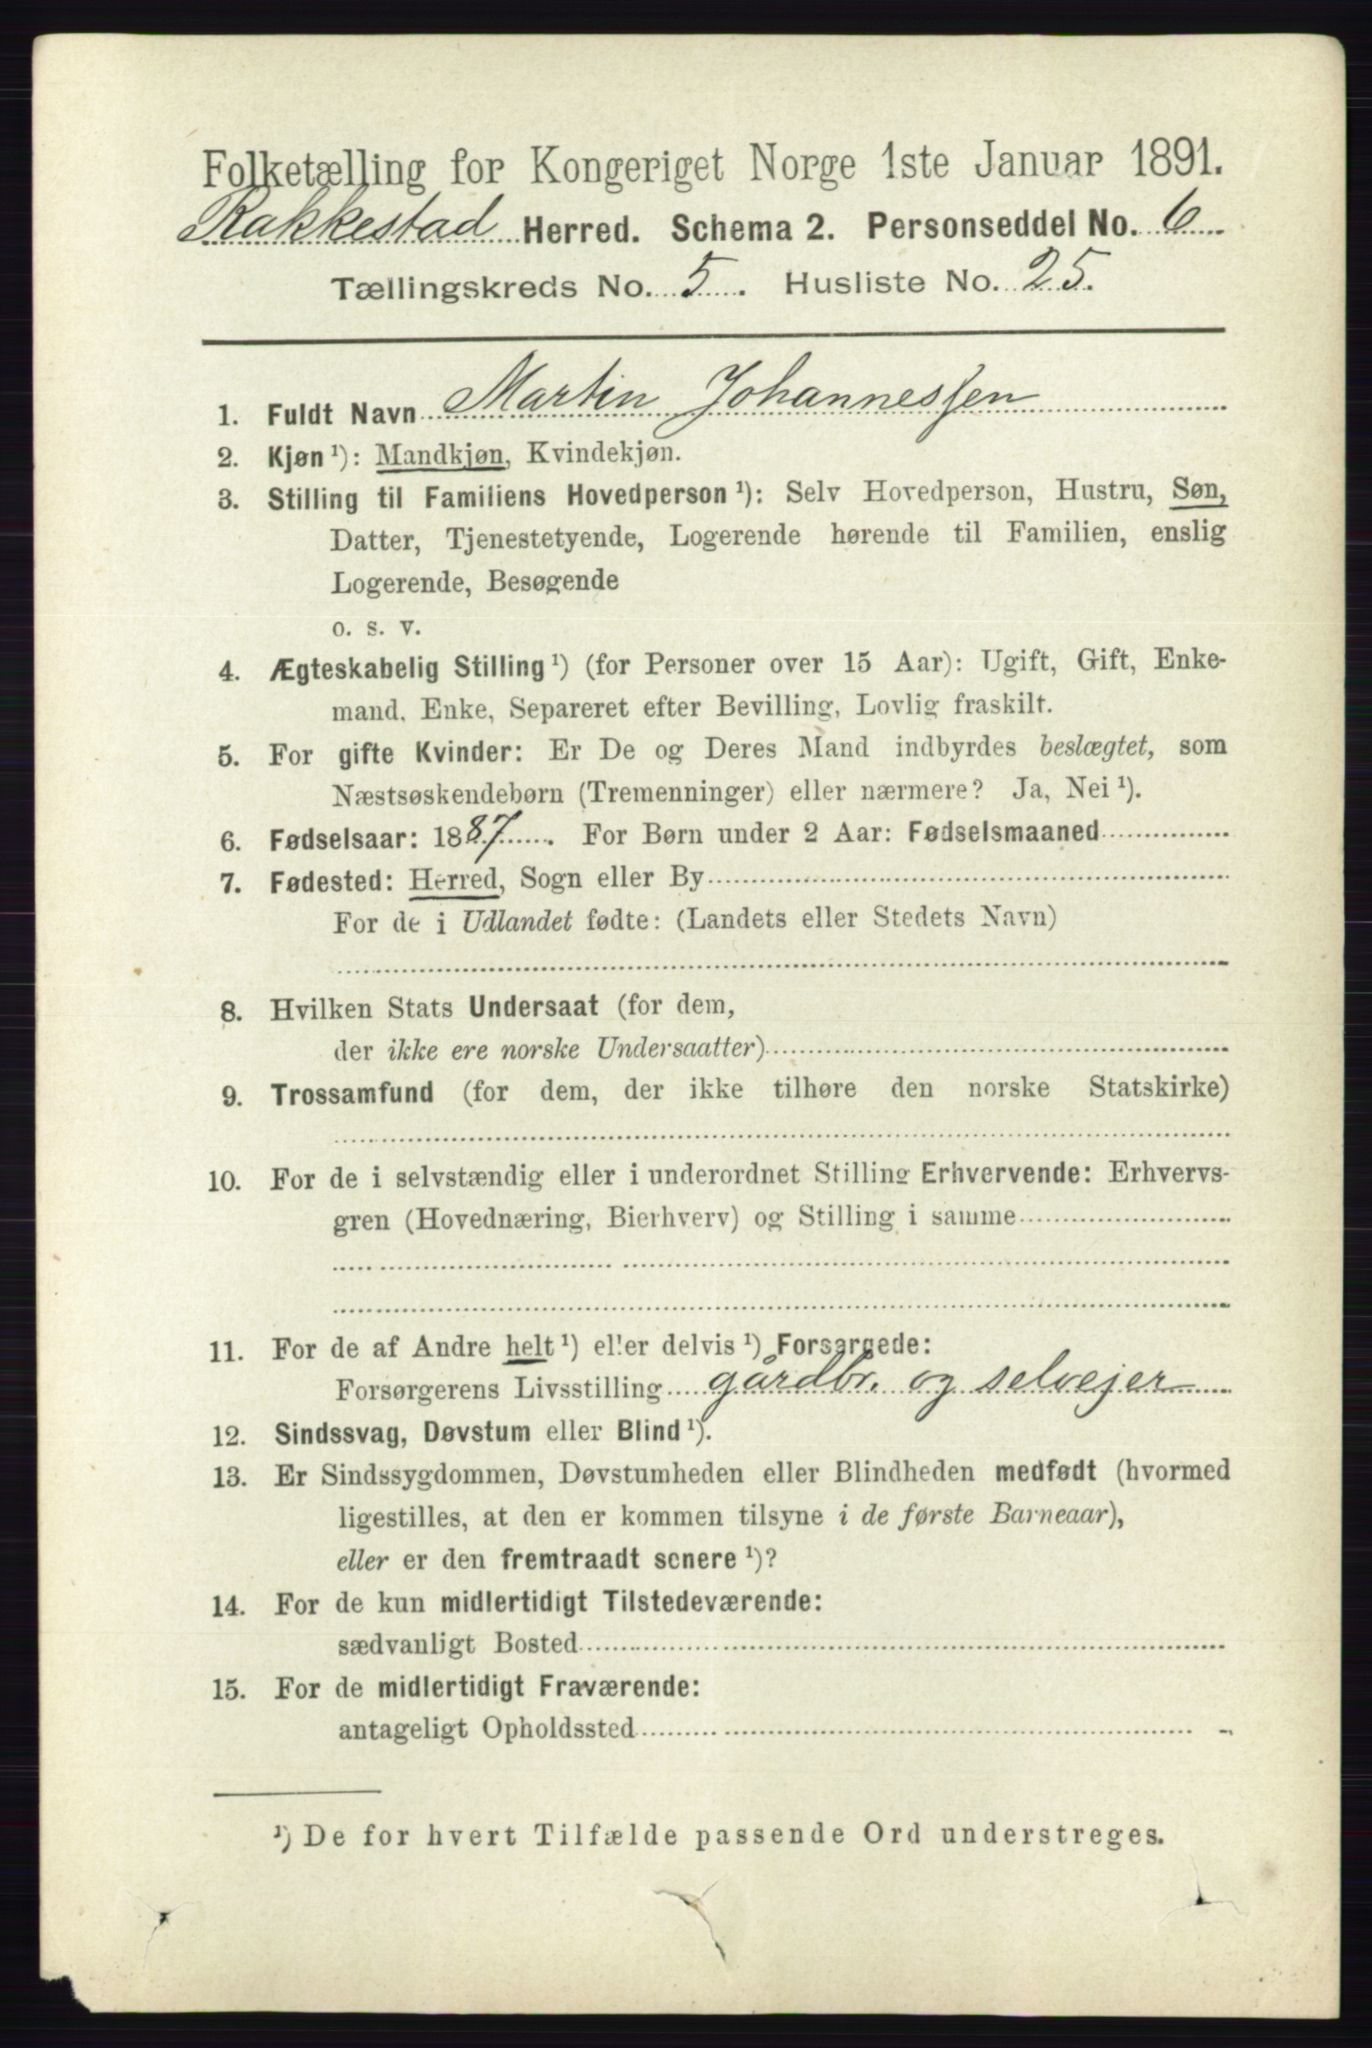 Folketælling for Kongeriget Norge 1ste Januar 1891.
Rakkestad Herred. Schema 2. Personseddel No. 6
Tællingskreds No. 5. Husliste No. 25.
1. Fuldt Navn Martin Johannessen
2. Kjøn ¹): Mandkjøn, Kvindekjøn.
3. Stilling til Familiens Hovedperson ¹): Selv Hovedperson, Hustru, Søn,
Datter, Tjenestetyende, Logerende hørende til Familien, enslig
Logerende, Besøgende
o. s. v.
4. Ægteskabelig Stilling ¹) (for Personer over 15 Aar): Ugift, Gift, Enke-
mand, Enke, Separeret efter Bevilling, Lovlig fraskilt.
5. For gifte Kvinder: Er De og Deres Mand indbyrdes beslægtet, som
Næstsøskendebørn (Tremenninger) eller nærmere? Ja, Nei ¹).
6. Fødselsaar: 1887. For Børn under 2 Aar: Fødselsmaaned
7. Fødested: Herred, Sogn eller By
For de i Udlandet fødte: (Landets eller Stedets Navn)
8. Hvilken Stats Undersaat (for dem,
der ikke ere norske Undersaatter)
9. Trossamfund (for dem, der ikke tilhøre den norske Statskirke)
10. For de i selvstændig eller i underordnet Stilling Erhvervende: Erhvervs-
gren (Hovednæring, Bierhverv) og Stilling i samme
11. For de af Andre helt ¹) eller delvis ¹) Forsørgede:
Forsørgerens Livsstilling gårdbr. og selvejer
12. Sindssvag, Døvstum eller Blind ¹).
13. Er Sindssygdommen, Døvstumheden eller Blindheden medfødt (hvormed
ligestilles, at den er kommen tilsyne i de første Barneaar),
eller er den fremtraadt senere ¹)?
14. For de kun midlertidigt Tilstedeværende:
sædvanligt Bosted
15. For de midlertidigt Fraværende:
antageligt Opholdssted
¹) De for hvert Tilfælde passende Ord understreges.